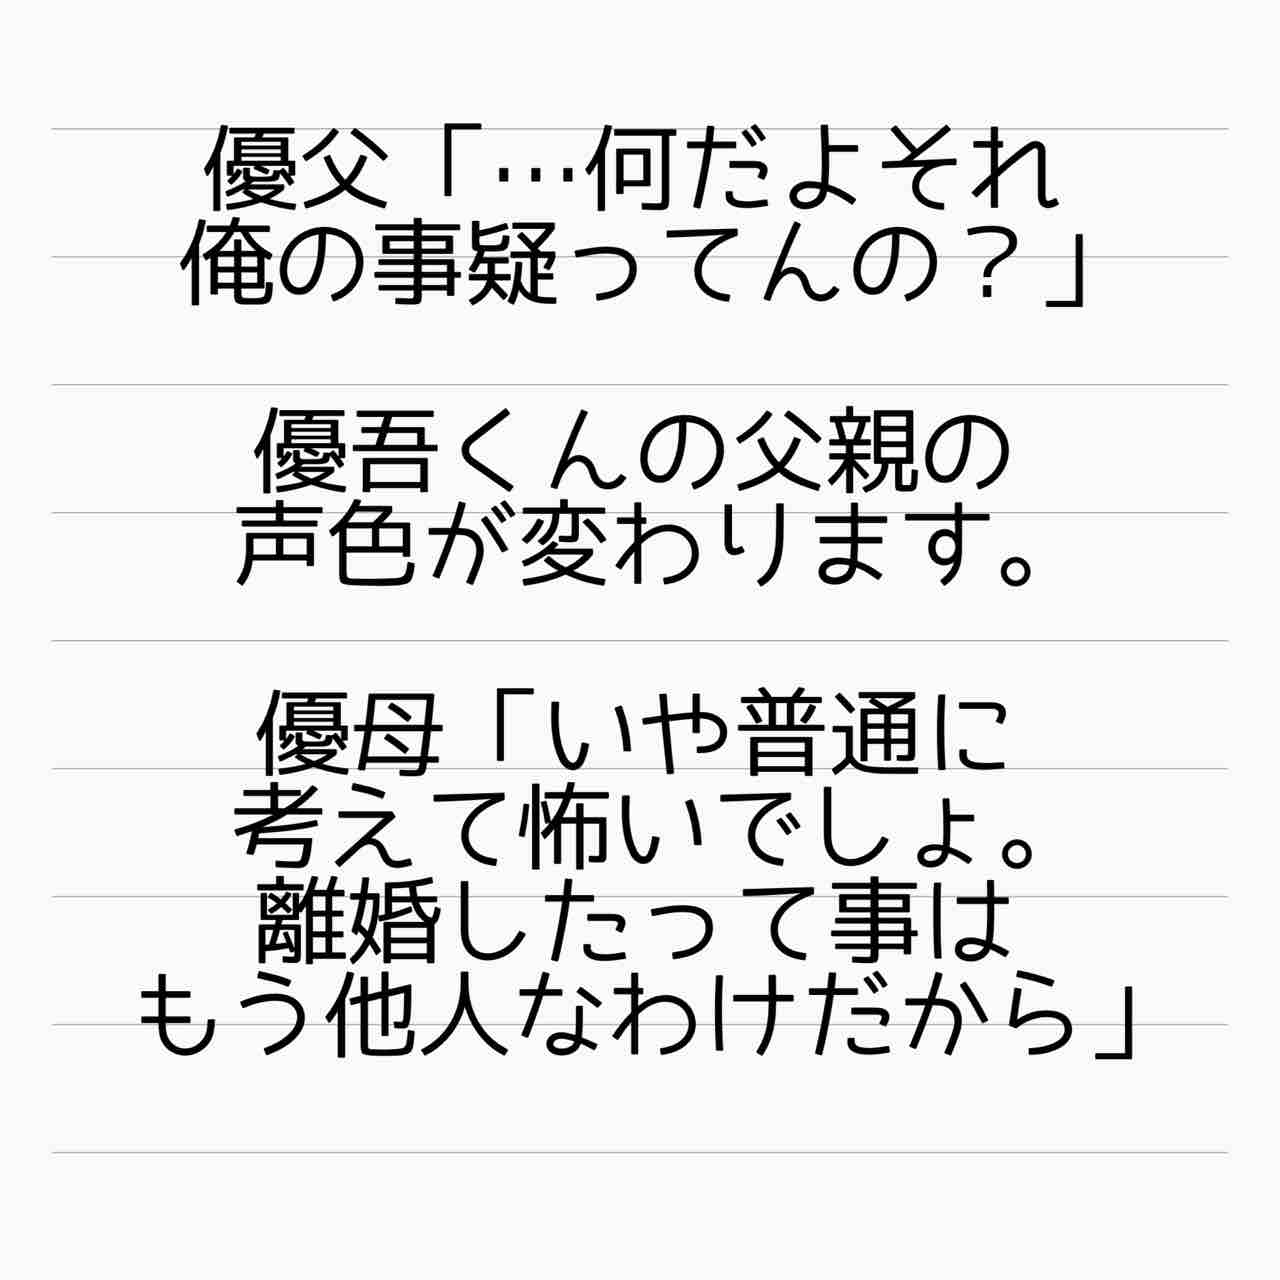 優父「…何だよそれ
俺の事疑ってんの？」
優吾くんの父親の
声色が変わります。
優母「いや普通に
考えて怖いでしょ。
離婚したって事は
もう他人なわけだから」